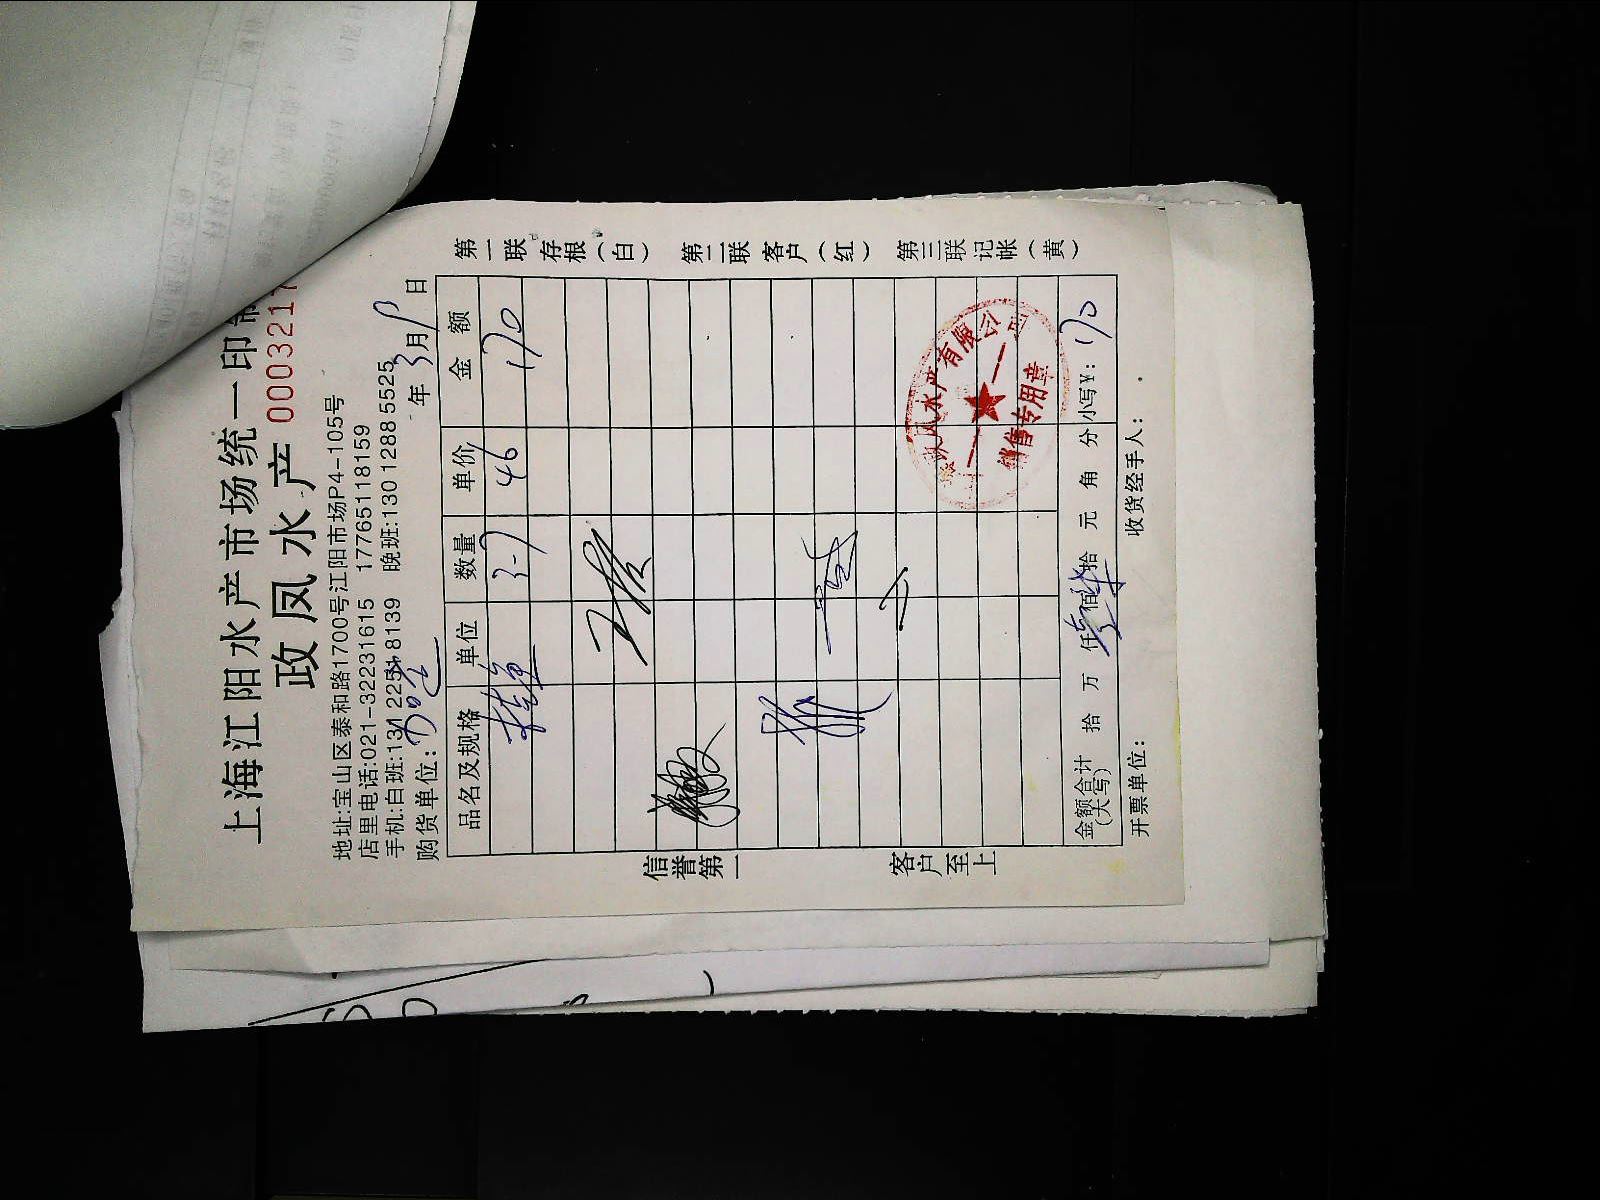 上海江阳水产市场统一印制
政凤水产
0003217
地址:宝山区泰和路1700号江阳市场P4-105号
店里电话:021-32231615 17765118159
手机:白班:131 2251 8139 晚班:130 1288 5525
购货单位:
年 3月9日
品名及规格 单位 数量 单价 金额
桂鱼 3-7 46 170
金额合计(大写) 拾 万 仟 佰 拾 元 角 分 小写¥: 170
开票单位: 收货经手人:
信誉第一 客户至上
第一联 存根(白) 第二联 客户(红) 第三联 记帐(黄)
政凤水产有限公司
销售专用章